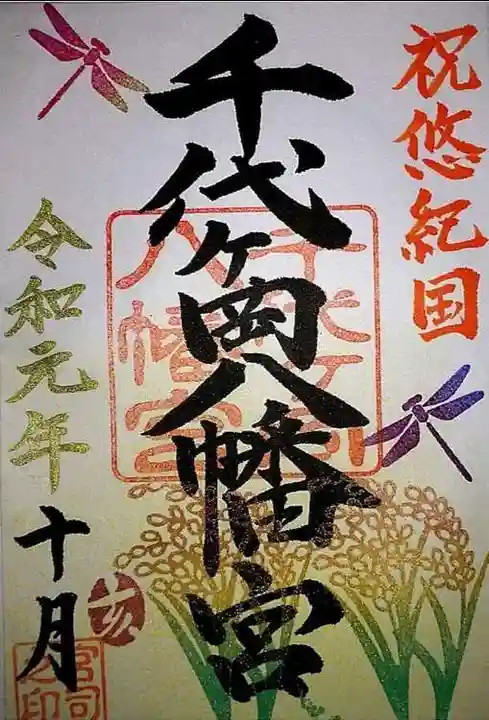 祝悠紀国
千代ヶ岡八幡宮
千代ヶ岡
八幡宮
令和元年
十月
亥
宮司
之印